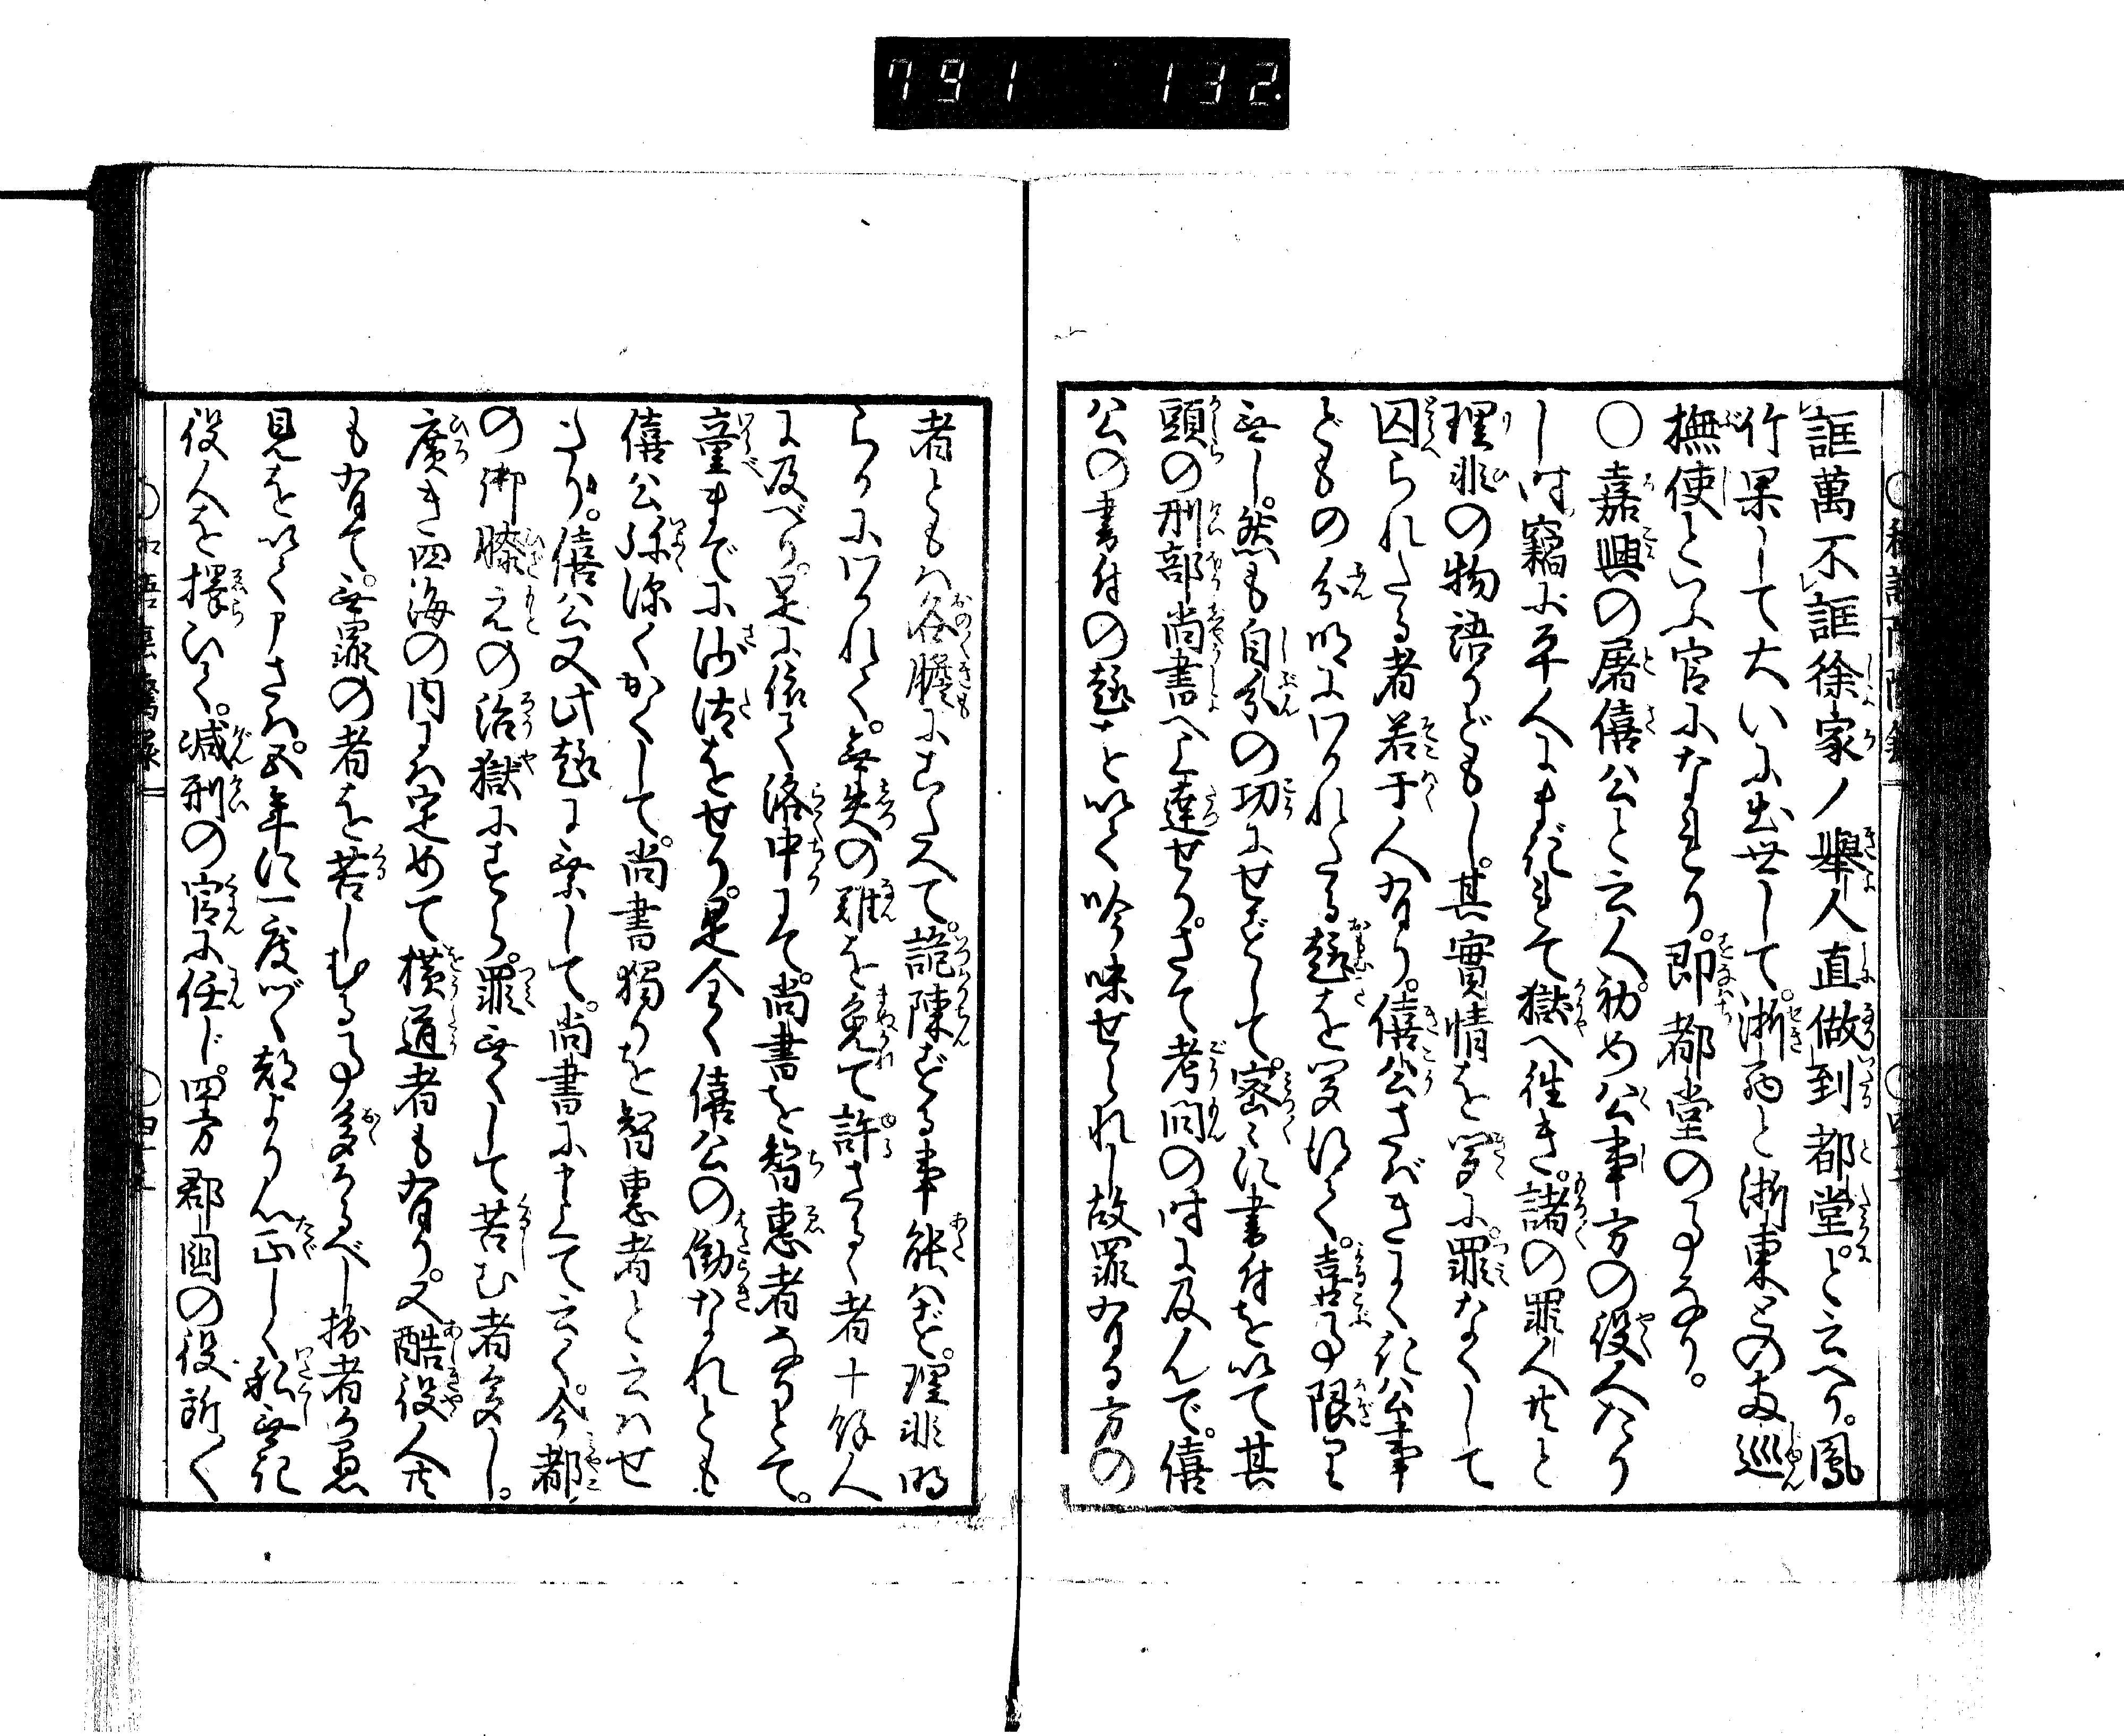 791 132
誆萬不誆徐家ノ舉人直做到都堂と云へり。鳳
竹果して大いに出世して。浙西と浙東との両巡
撫使といふ官になれり。即都堂の事なり。
○嘉興の屠僖公と云人。初め公事方の役人たり
し時。竊に平人にまぎれて獄へ往き。諸の罪人共と
理非の物語りどもし。其實情を聞に。罪なくして
囚られたる者若干人有り。僖公さばきにくき公事
どもの分明にわかれたる趣を聞得て。喜ぶ事限り
無し。然も自分の功にせずして。密に書付を以て其
頭の刑部尚書へ上達せり。さて考問の時に及んで。僖
公の書付の趣を以て吟味せられし故罪有る方の
者ともハ各膽にこたへて。詭陳ずる事能ハず。理非明
らかにわかれて。無失の難を免て許さるゝ者十餘人
に及べり。是に依て洛中にて。尚書を智惠者なりとて。
童までに沙汰をせり。是全く僖公の働なれとも
僖公弥深くかくして。尚書獨りを智惠者と云ハせ
たり。僖公又此趣に乗して。尚書に申て云く。今都
の御膝元の治獄にすら。罪無くして苦む者多し。
廣き四海の内にハ定めて横道者も有り。又酷役人共
も有て。無罪の者を苦しむる事多かるべし拙者か愚
見を以て申さハ。五年に一度づゝ都より心正しく私無
役人を擇ひて。減刑の官に任じ。四方郡國の役所く